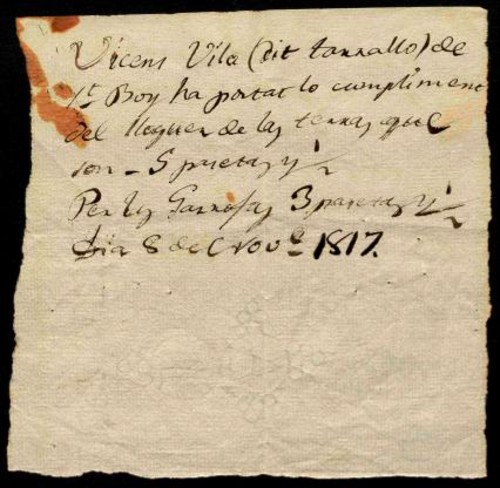 Vicens Vila (dit tarrallo) de
St Boy ha portat lo cumpliment
del lloguer de las terras que
son - 5 pesetas y ½
Per las Garrofas 3 pesetas y ½
Dia 8 de Nove 1817.